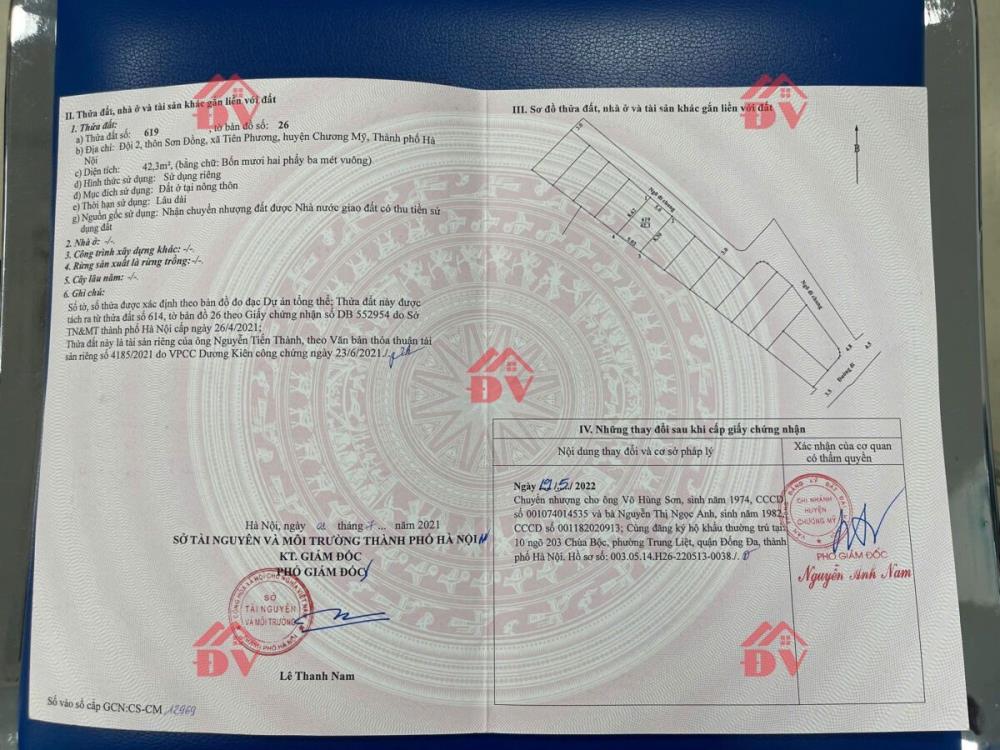 II. Thửa đất, nhà ở và tài sản khác gắn liền với đất
1. Thửa đất:
a) Thửa đất số: 619 , tờ bản đồ số: 26
b) Địa chỉ: Đội 2, thôn Sơn Đồng, xã Tiên Phương, huyện Chương Mỹ, Thành phố Hà
Nội
c) Diện tích: 42,3m², (bằng chữ: Bốn mươi hai phẩy ba mét vuông)
d) Hình thức sử dụng: Sử dụng riêng
đ) Mục đích sử dụng: Đất ở tại nông thôn
e) Thời hạn sử dụng: Lâu dài
g) Nguồn gốc sử dụng: Nhận chuyển nhượng đất được Nhà nước giao đất có thu tiền sử
dụng đất
2. Nhà ở: -/-
3. Công trình xây dựng khác: -/-
4. Rừng sản xuất là rừng trồng: -/-
5. Cây lâu năm: -/-
6. Ghi chú:
Số tờ, số thửa được xác định theo bản đồ đo đạc Dự án tổng thể; Thửa đất này được
tách ra từ thửa đất số 614, tờ bản đồ 26 theo Giấy chứng nhận số DB 552954 do Sở
TN&MT thành phố Hà Nội cấp ngày 26/4/2021;
Thửa đất này là tài sản riêng của ông Nguyễn Tiến Thành, theo Văn bản thỏa thuận tài
sản riêng số 4185/2021 do VPCC Dương Kiên công chứng ngày 23/6/2021./.
Hà Nội, ngày tháng 7 năm 2021
SỞ TÀI NGUYÊN VÀ MÔI TRƯỜNG THÀNH PHỐ HÀ NỘI
KT. GIÁM ĐỐC
PHÓ GIÁM ĐỐC
SỞ
TÀI NGUYÊN
VÀ MÔI TRƯỜNG
Lê Thanh Nam
Số vào sổ cấp GCN:CS-CM 12969
III. Sơ đồ thửa đất, nhà ở và tài sản khác gắn liền với đất
B
Ngõ đi chung
Ngõ đi chung
Đường đi
4.8
4.5
3.5
IV. Những thay đổi sau khi cấp giấy chứng nhận
Nội dung thay đổi và cơ sở pháp lý
Xác nhận của cơ quan
có thẩm quyền
Ngày 19/5/2022
Chuyển nhượng cho ông Võ Hùng Sơn, sinh năm 1974, CCCD
số 001074014535 và bà Nguyễn Thị Ngọc Anh, sinh năm 1982,
CCCD số 001182020913; Cùng đăng ký hộ khẩu thường trú tại:
10 ngõ 203 Chùa Bộc, phường Trung Liệt, quận Đống Đa, thành
phố Hà Nội. Hồ sơ số: 003.05.14.H26-220513-0038./.
CHI NHÁNH
HUYỆN
CHƯƠNG MỸ
PHÓ GIÁM ĐỐC
Nguyễn Anh Nam
ĐV
ĐV
ĐV
ĐV
ĐV